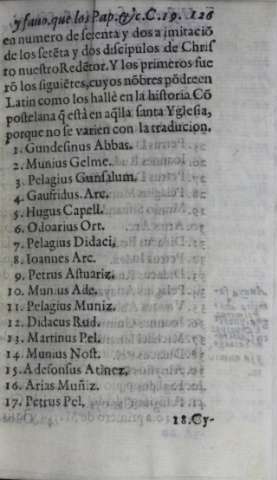 y fauo. que los Pap. &c. C. 19. 126
en numero de setenta y dos a imitaciō
de los setēta y dos discipulos de Chris
to nuestro Redētor. Y los primeros fue
rō los siguiētes, cuyos nōbres pōdre en
Latin como los hallè en la historia Cō
postelana q̃ està en aq̃lla santa Yglesia,
porque no se varien con la traducion.
1. Gundesinus Abbas.
2. Munius Gelme.
3. Pelagius Gunsalum.
4. Gaufridus. Arc.
5. Hugus Capell.
6. Odoarius Ort.
7. Pelagius Didaci,
8. Ioannes Arc.
9. Petrus Astuariz,
10. Munius Ade.
11. Pelagius Muniz.
12. Didacus Rud.
13. Martinus Pel.
14. Munius Nost.
15. Adefonsus Atinez,
16. Arias Muñiz.
17. Petrus Pel,
18. Cy-